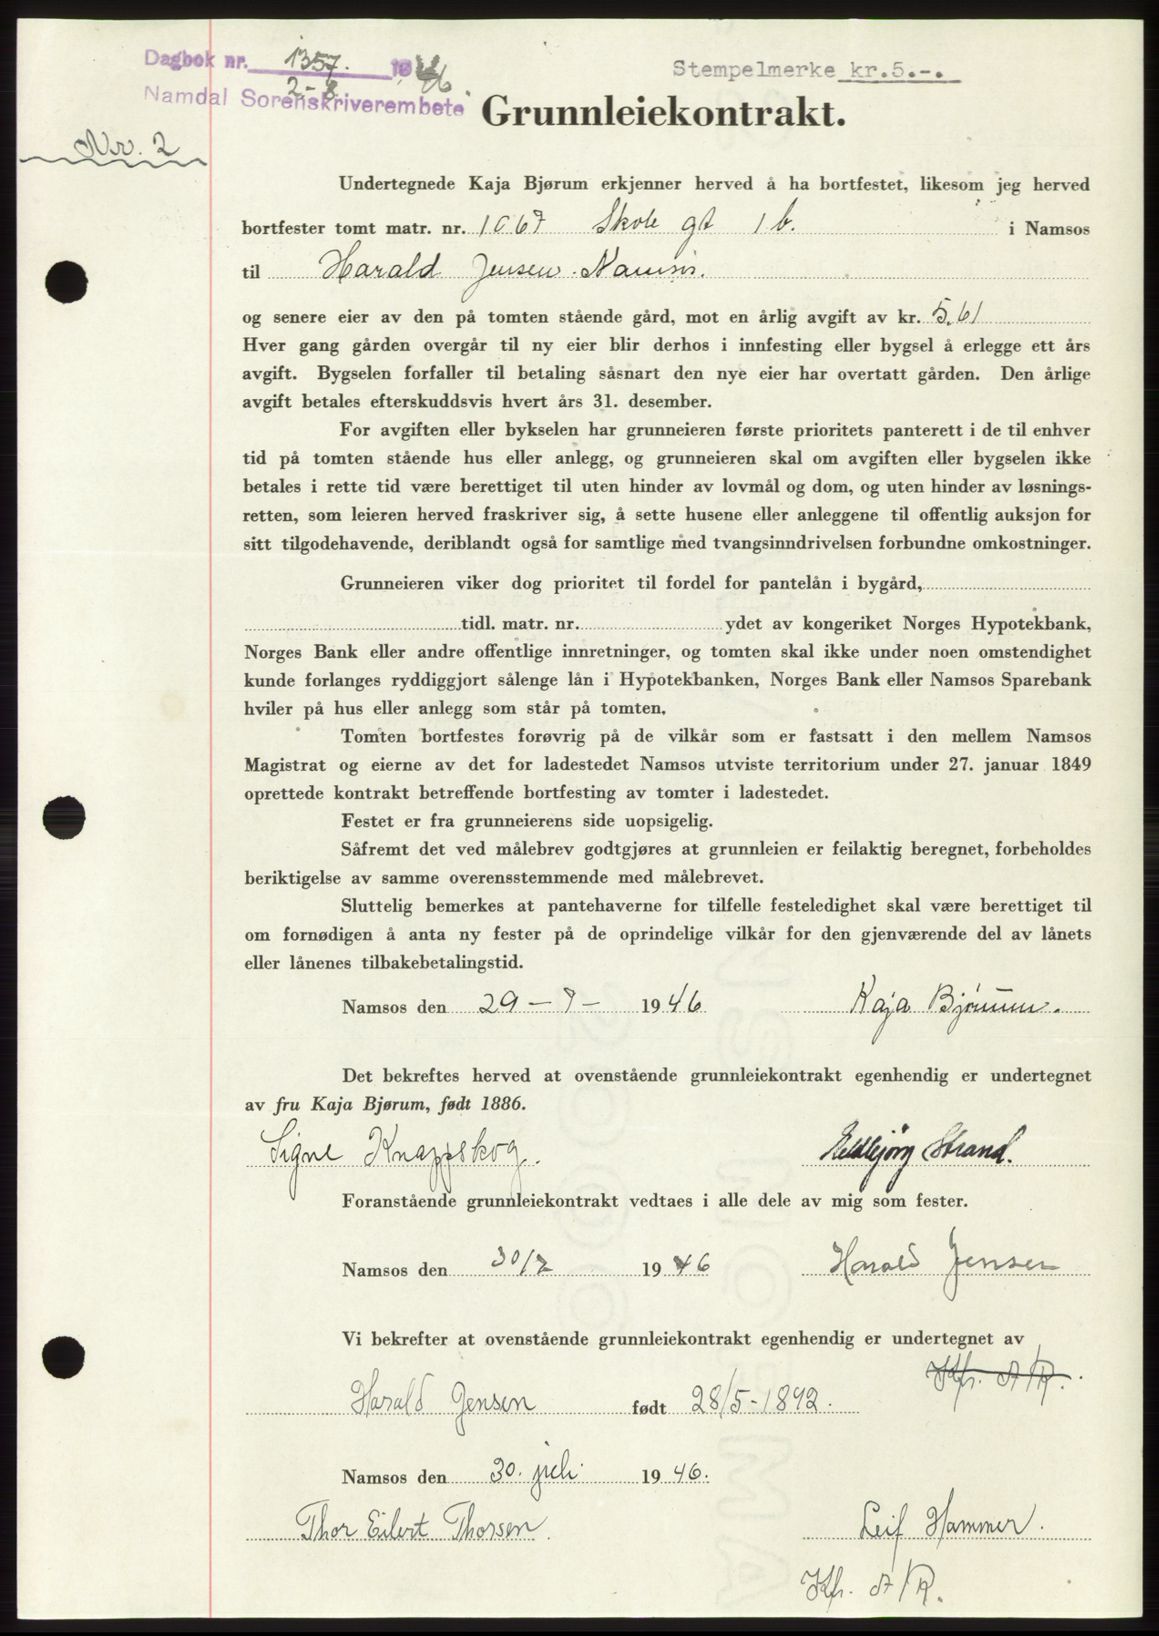 Dagbok nr. 1357. 1946
2-8
Namdal Sorenskriverembete
Stempelmerke kr.5.-.
Grunnleiekontrakt.
Nr. 2
Undertegnede Kaja Bjørum erkjenner herved å ha bortfestet, likesom jeg herved
bortfester tomt matr. nr. 1067 Skole gt 1 b. i Namsos
til Harald Jensen Namsos.
og senere eier av den på tomten stående gård, mot en årlig avgift av kr. 5.61
Hver gang gården overgår til ny eier blir derhos i innfesting eller bygsel å erlegge ett års
avgift. Bygselen forfaller til betaling såsnart den nye eier har overtatt gården. Den årlige
avgift betales efterskuddsvis hvert års 31. desember.
For avgiften eller bykselen har grunneieren første prioritets panterett i de til enhver
tid på tomten stående hus eller anlegg, og grunneieren skal om avgiften eller bygselen ikke
betales i rette tid være berettiget til uten hinder av lovmål og dom, og uten hinder av løsnings-
retten, som leieren herved fraskriver sig, å sette husene eller anleggene til offentlig auksjon for
sitt tilgodehavende, deriblandt også for samtlige med tvangsinndrivelsen forbundne omkostninger.
Grunneieren viker dog prioritet til fordel for pantelån i bygård,
tidl. matr. nr. ydet av kongeriket Norges Hypotekbank,
Norges Bank eller andre offentlige innretninger, og tomten skal ikke under noen omstendighet
kunde forlanges ryddiggjort sålenge lån i Hypotekbanken, Norges Bank eller Namsos Sparebank
hviler på hus eller anlegg som står på tomten.
Tomten bortfestes forøvrig på de vilkår som er fastsatt i den mellem Namsos
Magistrat og eierne av det for ladestedet Namsos utviste territorium under 27. januar 1849
oprettede kontrakt betreffende bortfesting av tomter i ladestedet.
Festet er fra grunneierens side uopsigelig.
Såfremt det ved målebrev godtgjøres at grunnleien er feilaktig beregnet, forbeholdes
beriktigelse av samme overensstemmende med målebrevet.
Sluttelig bemerkes at pantehaverne for tilfelle festeledighet skal være berettiget til
om fornødigen å anta ny fester på de oprindelige vilkår for den gjenværende del av lånets
eller lånenes tilbakebetalingstid.
Namsos den 29-7- 1946 Kaja Bjørum.
Det bekreftes herved at ovenstående grunnleiekontrakt egenhendig er undertegnet
av fru Kaja Bjørum, født 1886.
Signe Knappskog. Eldbjørg Strand.
Foranstående grunnleiekontrakt vedtaes i alle dele av mig som fester.
Namsos den 30/7 1946 Harald Jensen
Vi bekrefter at ovenstående grunnleiekontrakt egenhendig er undertegnet av
Kfr. A/R.
Harald Jensen født 28/5-1892.
Namsos den 30. juli 1946.
Thor Eilert Thorsen. Leif Hammer.
Kfr. A/R.